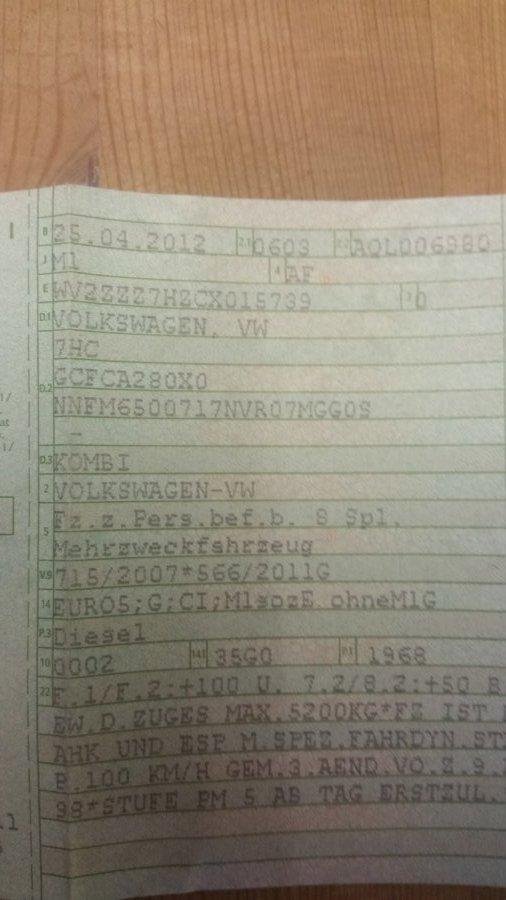 B 25.04.2012 2.1 0603 2.2 AQL006980
J M1 4 AF
E WV2ZZZ7HZCX015739 3 0
D.1 VOLKSWAGEN, VW
7HC
D.2 GCFCA280X0
NNFM6500717NVR07MGG0S
-
D.3 KOMBI
2 VOLKSWAGEN-VW
5 Fz.z.Pers.bef.b. 8 Spl.
Mehrzweckfahrzeug
V.9 715/2007*566/2011G
14 EURO5;G;CI;M1sozE ohneM1G
P.3 Diesel
10 0002 14.1 35G0 P.1 1968
22 F.1/F.2:+100 U. 7.2/8.2:+50 B
EW.D.ZUGES MAX.5200KG*FZ IST
AHK UND ESP M.SPEZ.FAHRDYN.ST
P.100 KM/H GEM.3.AEND.VO.Z.9.
98*STUFE PM 5 AB TAG ERSTZUL.